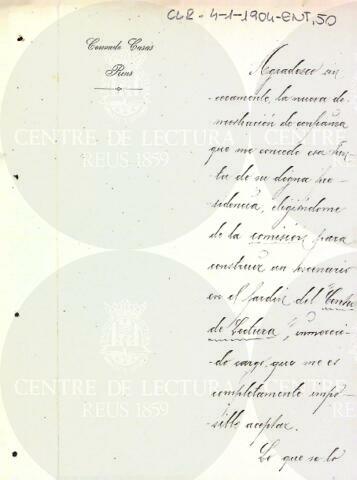 CLR-4-1-1904-ENT,50
Conrado Casas
Reus
Agradezco sin
-ceramente, la nueva de-
mostración de confianza
que me concede esa Jun-
ta de su digna Pre-
sidencia, eligiéndome
de la comisión para
construir un escenario
en el Jardín del "Centro
de Lectura", inmereci-
-do cargo, que me es
completamente impo-
-sible aceptar.
Lo que se lo
CENTRE DE LECTURA
REUS 1859
CENTRE DE LECTURA
REUS 1859